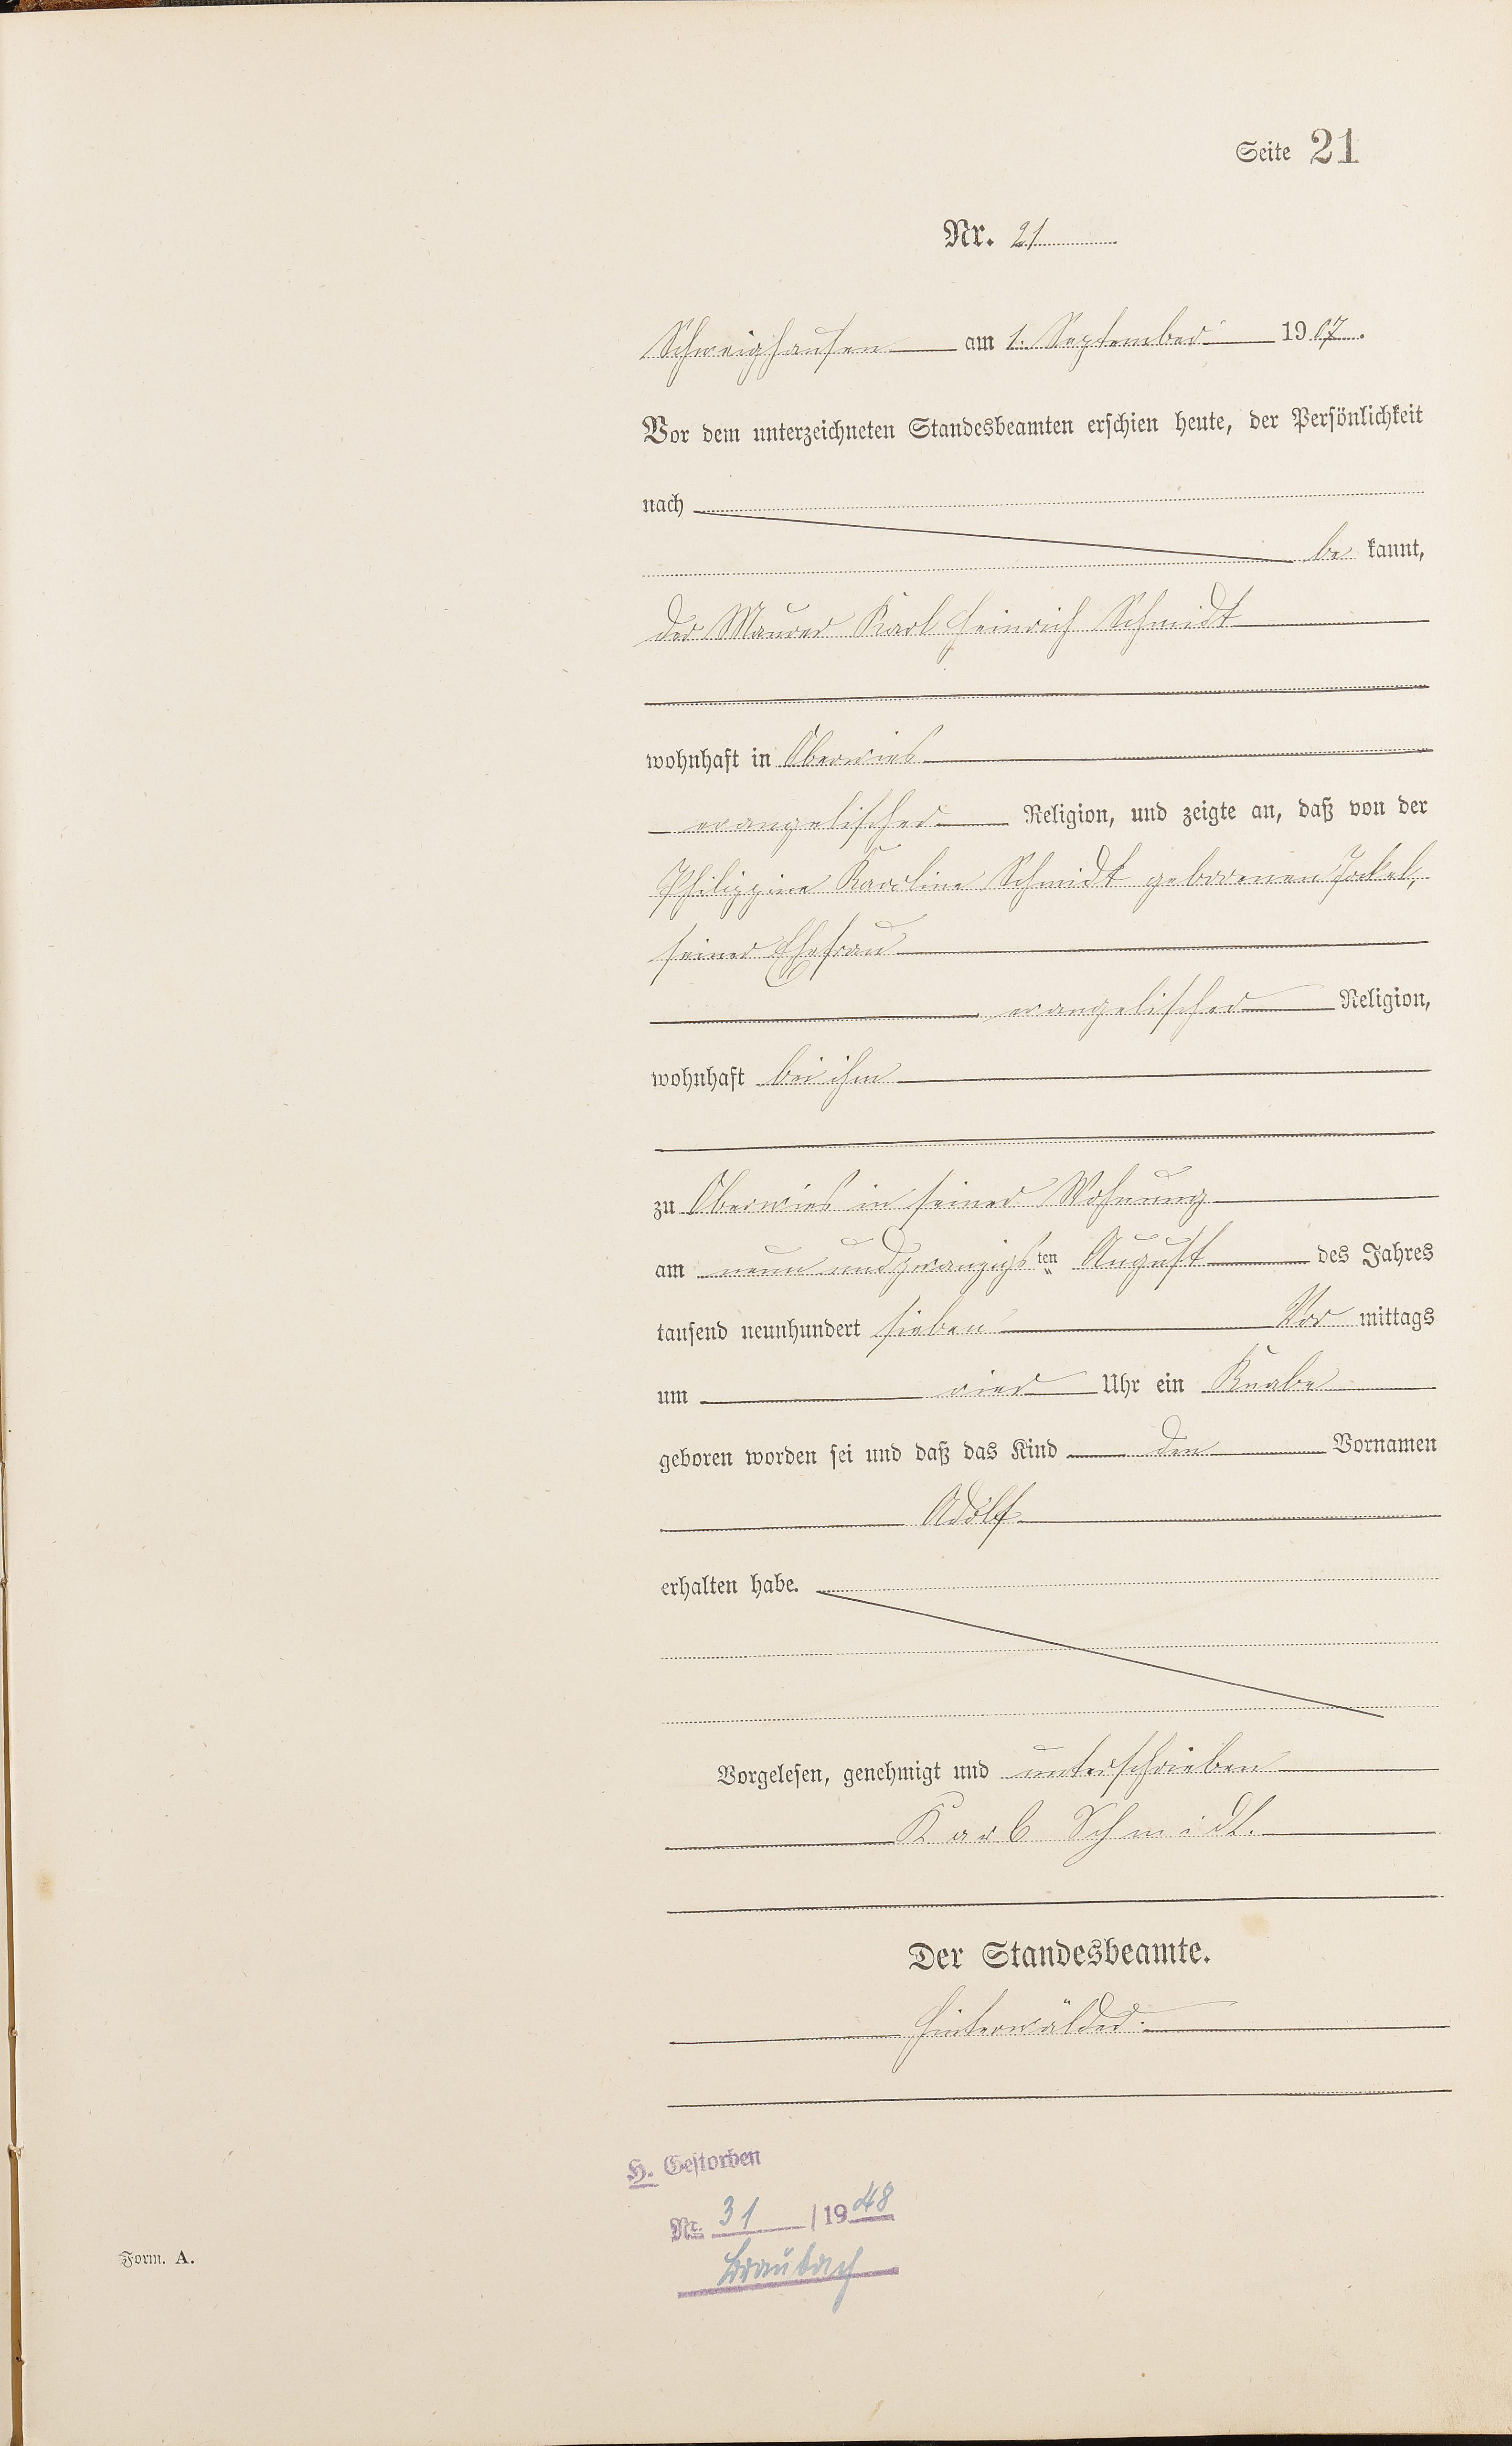 Seite 21
Nr. 21
Schweighausen am 1. September 1907.
Vor dem unterzeichneten Standesbeamten erschien heute, der Persönlichkeit
nach
be kannt,
der Maurer Karl Heinrich Schmidt
wohnhaft in Oberwies
evangelischer Religion, und zeigte an, daß von der
Philippine Karoline Schmidt geborenen Jockel,
seiner Ehefrau
evangelischer Religion,
wohnhaft bei ihm
zu Oberwies in seiner Wohnung
am neun und zwanzigsten August des Jahres
tausend neunhundert sieben Vor mittags
um vier Uhr ein Knabe
geboren worden sei und daß das Kind den Vornamen
Adolf
erhalten habe.
Vorgelesen, genehmigt und unterschrieben
Karl Schmidt.
Der Standesbeamte.
Hinterwälder.
H. Gestorben
Nr. 31 / 1948
Braubach
Form. A.